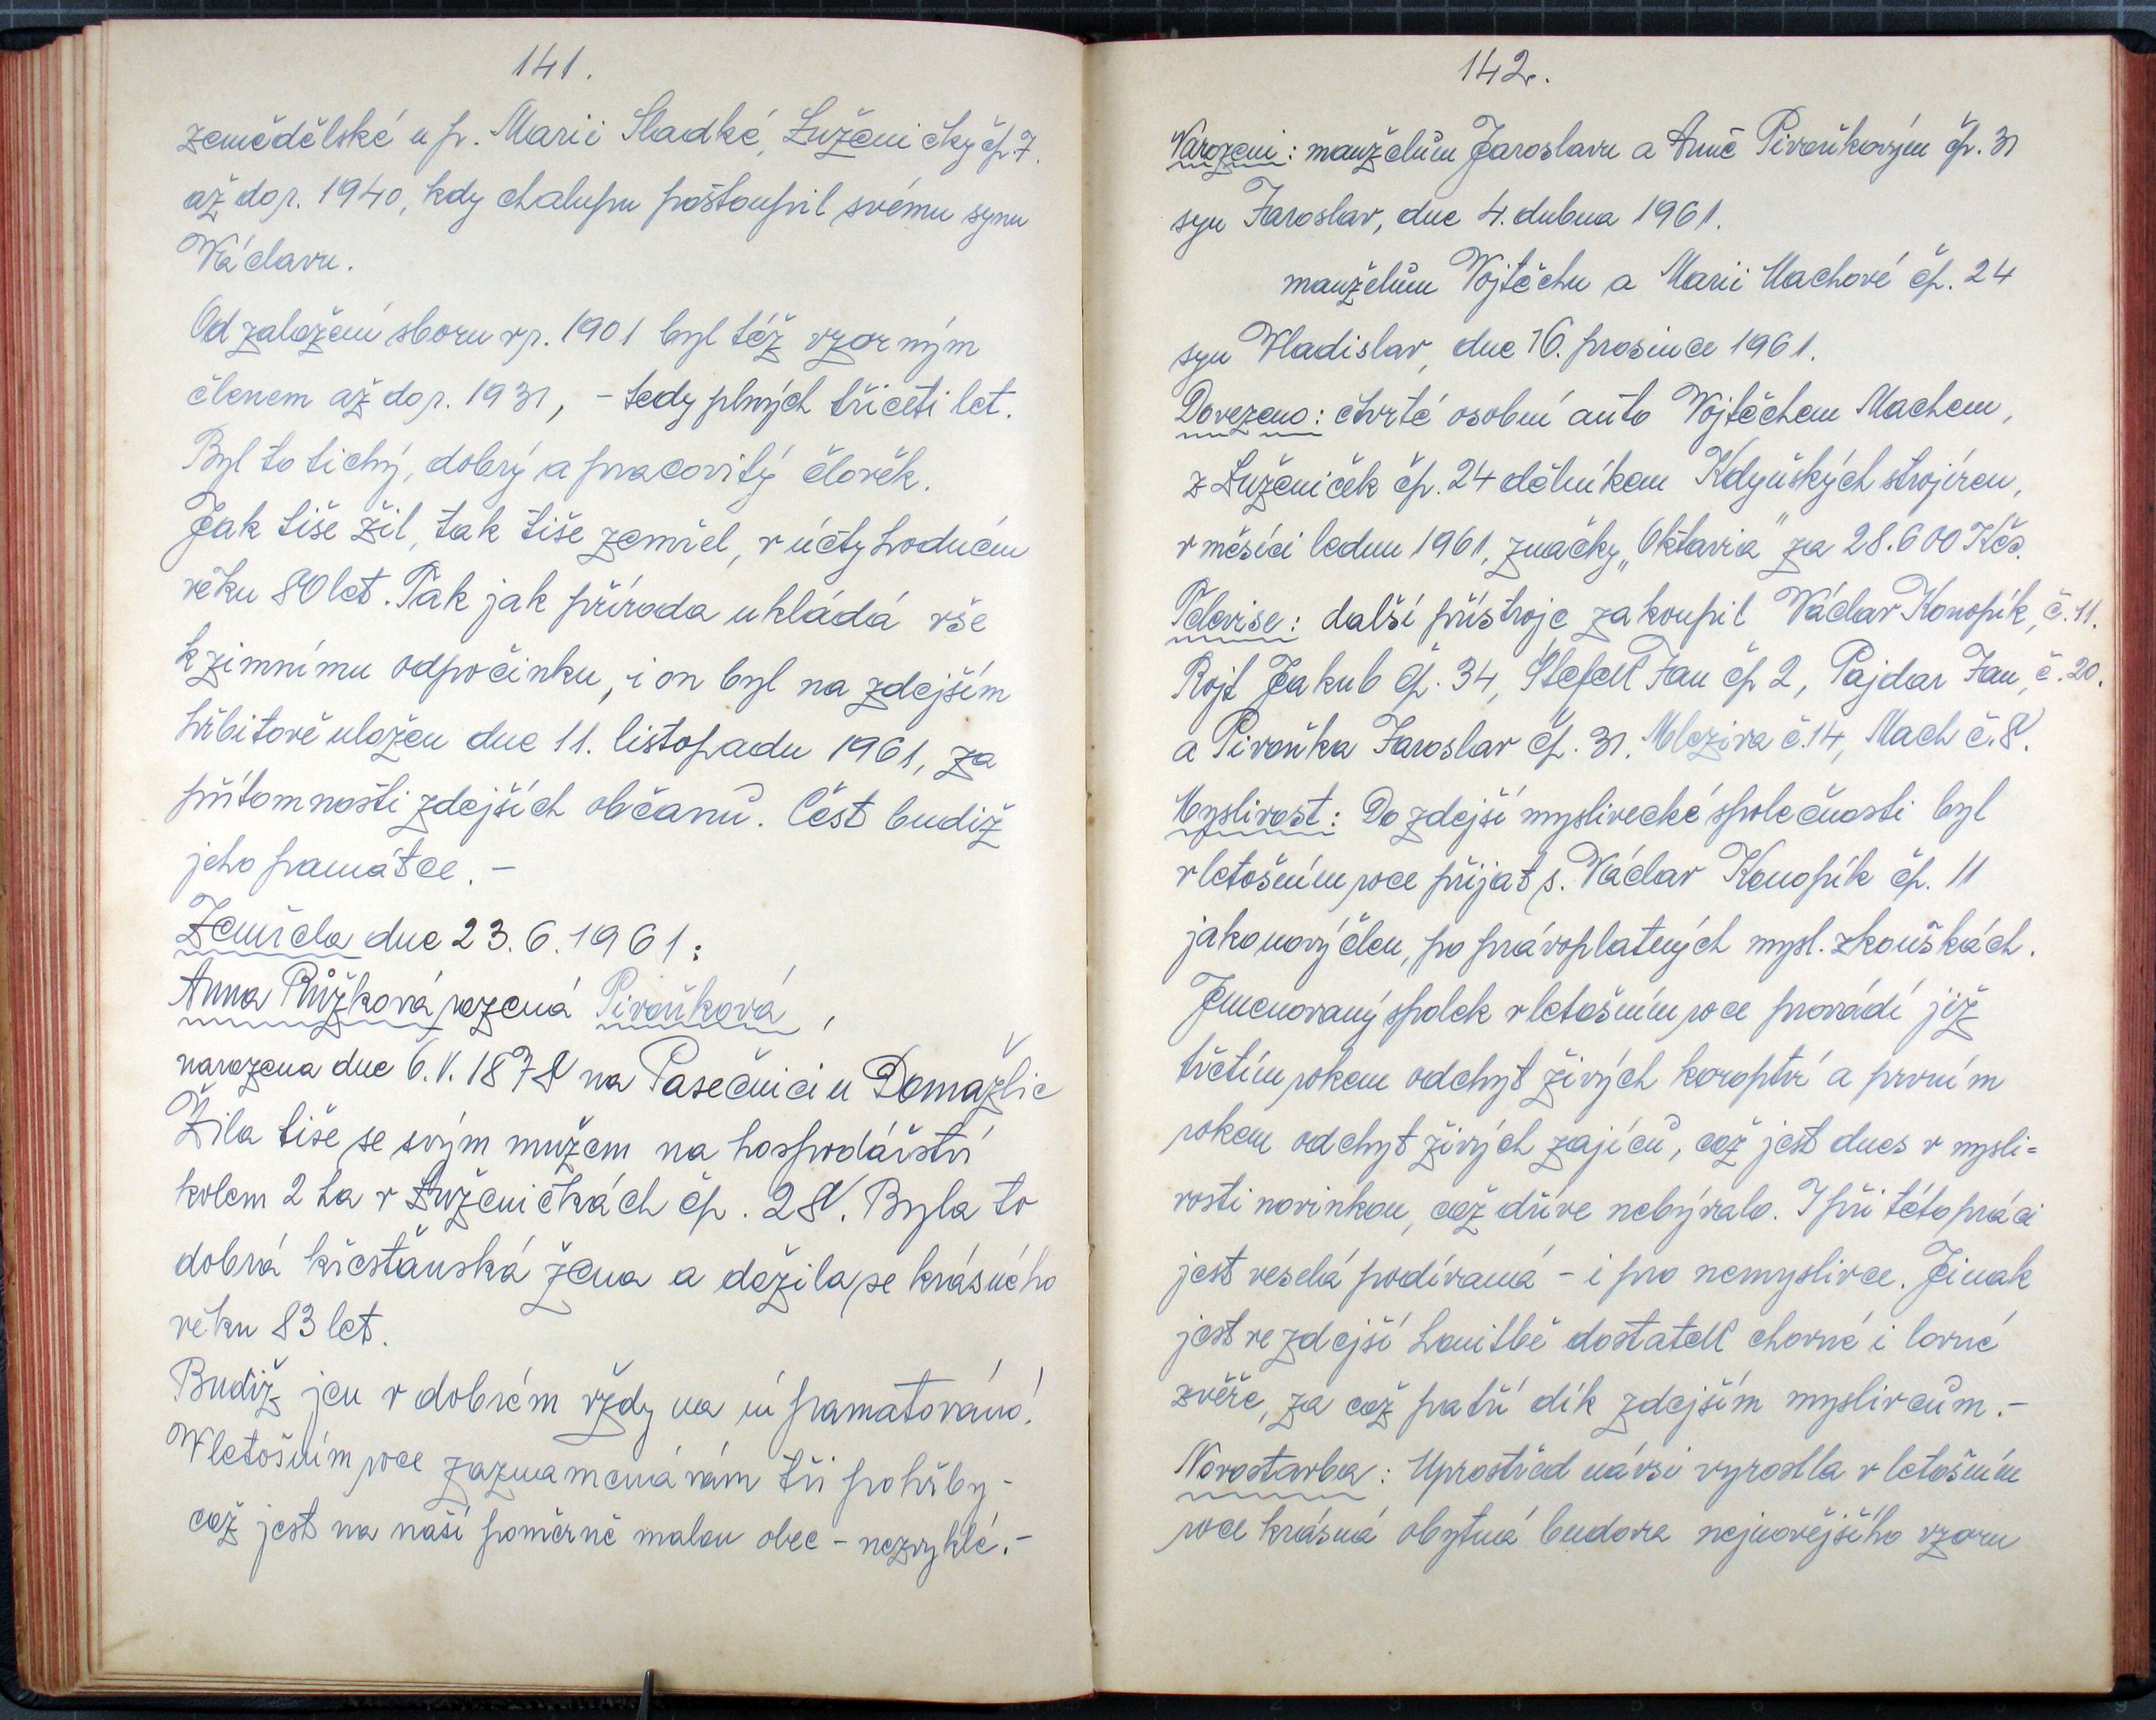 141.
zemědělské u p. Marii Sladké, Luženičky čp. 7.
až do r. 1940, kdy chalupu postoupil svému synu
Václavu.
Od založení sboru v r. 1901 byl též vzorným
členem až do r. 1931, - tedy plných třiceti let.
Byl to tichý, dobrý a pracovitý člověk.
Jak tiše žil, tak tiše zemřel, v úctyhodném
věku 80 let. Tak jak příroda ukládá vše
k zimnímu odpočinku, i on byl na zdejším
hřbitově uložen dne 11. listopadu 1961, za
přítomnosti zdejších občanů. Čest budiž
jeho památce. -
Zemřela dne 23. 6. 1961:
Anna Růžková rozená Pivoňková,
narozena dne 6. V. 1878 na Pasečnici u Domažlic
Žila tiše se svým mužem na hospodářství
kolem 2 ha v Luženičkách čp. 28. Byla to
dobrá křesťanská žena a dožila se krásného
věku 83 let.
Budiž jen v dobrém vždy na ní pamatováno!
V letošním roce zaznamenávám tři pohřby -
což jest na naši poměrně malou obec - nezvyklé. -
142.
Narozeni: manželům Jaroslavu a Anně Pivoňkovým čp. 31
syn Jaroslav, dne 4. dubna 1961.
manželům Vojtěchu a Marii Machové čp. 24
syn Vladislav, dne 16. prosince 1961.
Dovezeno: čtvrté osobní auto Vojtěchem Machem,
z Luženiček čp. 24 dělníkem Kdyňských strojíren,
v měsíci lednu 1961, značky „Oktavia" za 28.600 Kčs.
Televise: další přístroje zakoupil Václav Konopík, č. 11.
Rojt Jakub čp. 34, Štefell Jan čp 2, Pajdar Jan, č. 20.
a Pivoňka Jaroslav čp. 31. Mleziva č. 14, Mach č. 8.
Myslivost: Do zdejší myslivecké společnosti byl
v letošním roce přijat s. Václav Konopík čp. 11
jako nový člen, po právoplatných mysl. zkouškách.
Jmenovaný spolek v letošním roce provádí již
třetím rokem odchyt živých koroptví a prvním
rokem odchyt živých zajíců, což jest dnes v mysli=
vosti novinkou, což dříve nebývalo. I při této práci
jest veselá podívaná - i pro nemyslivce. Jinak
jest ve zdejší honitbě dostatek chovné i lovné
zvěře, za což patří dík zdejším myslivcům. -
Novostavba: Uprostřed návsi vyrostla v letošním
roce krásná obytná budova nejnovějšího vzoru